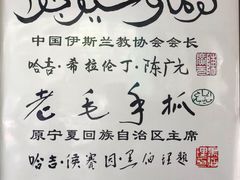 中国伊斯兰教协会会长
哈吉·希拉伦丁·陈广元
老毛手抓
原宁夏回族自治区主席
哈吉·侯赛因·黑伯理题